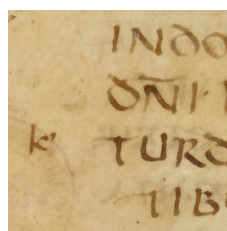 INDO
DN̅I·
k' TURD
TIB